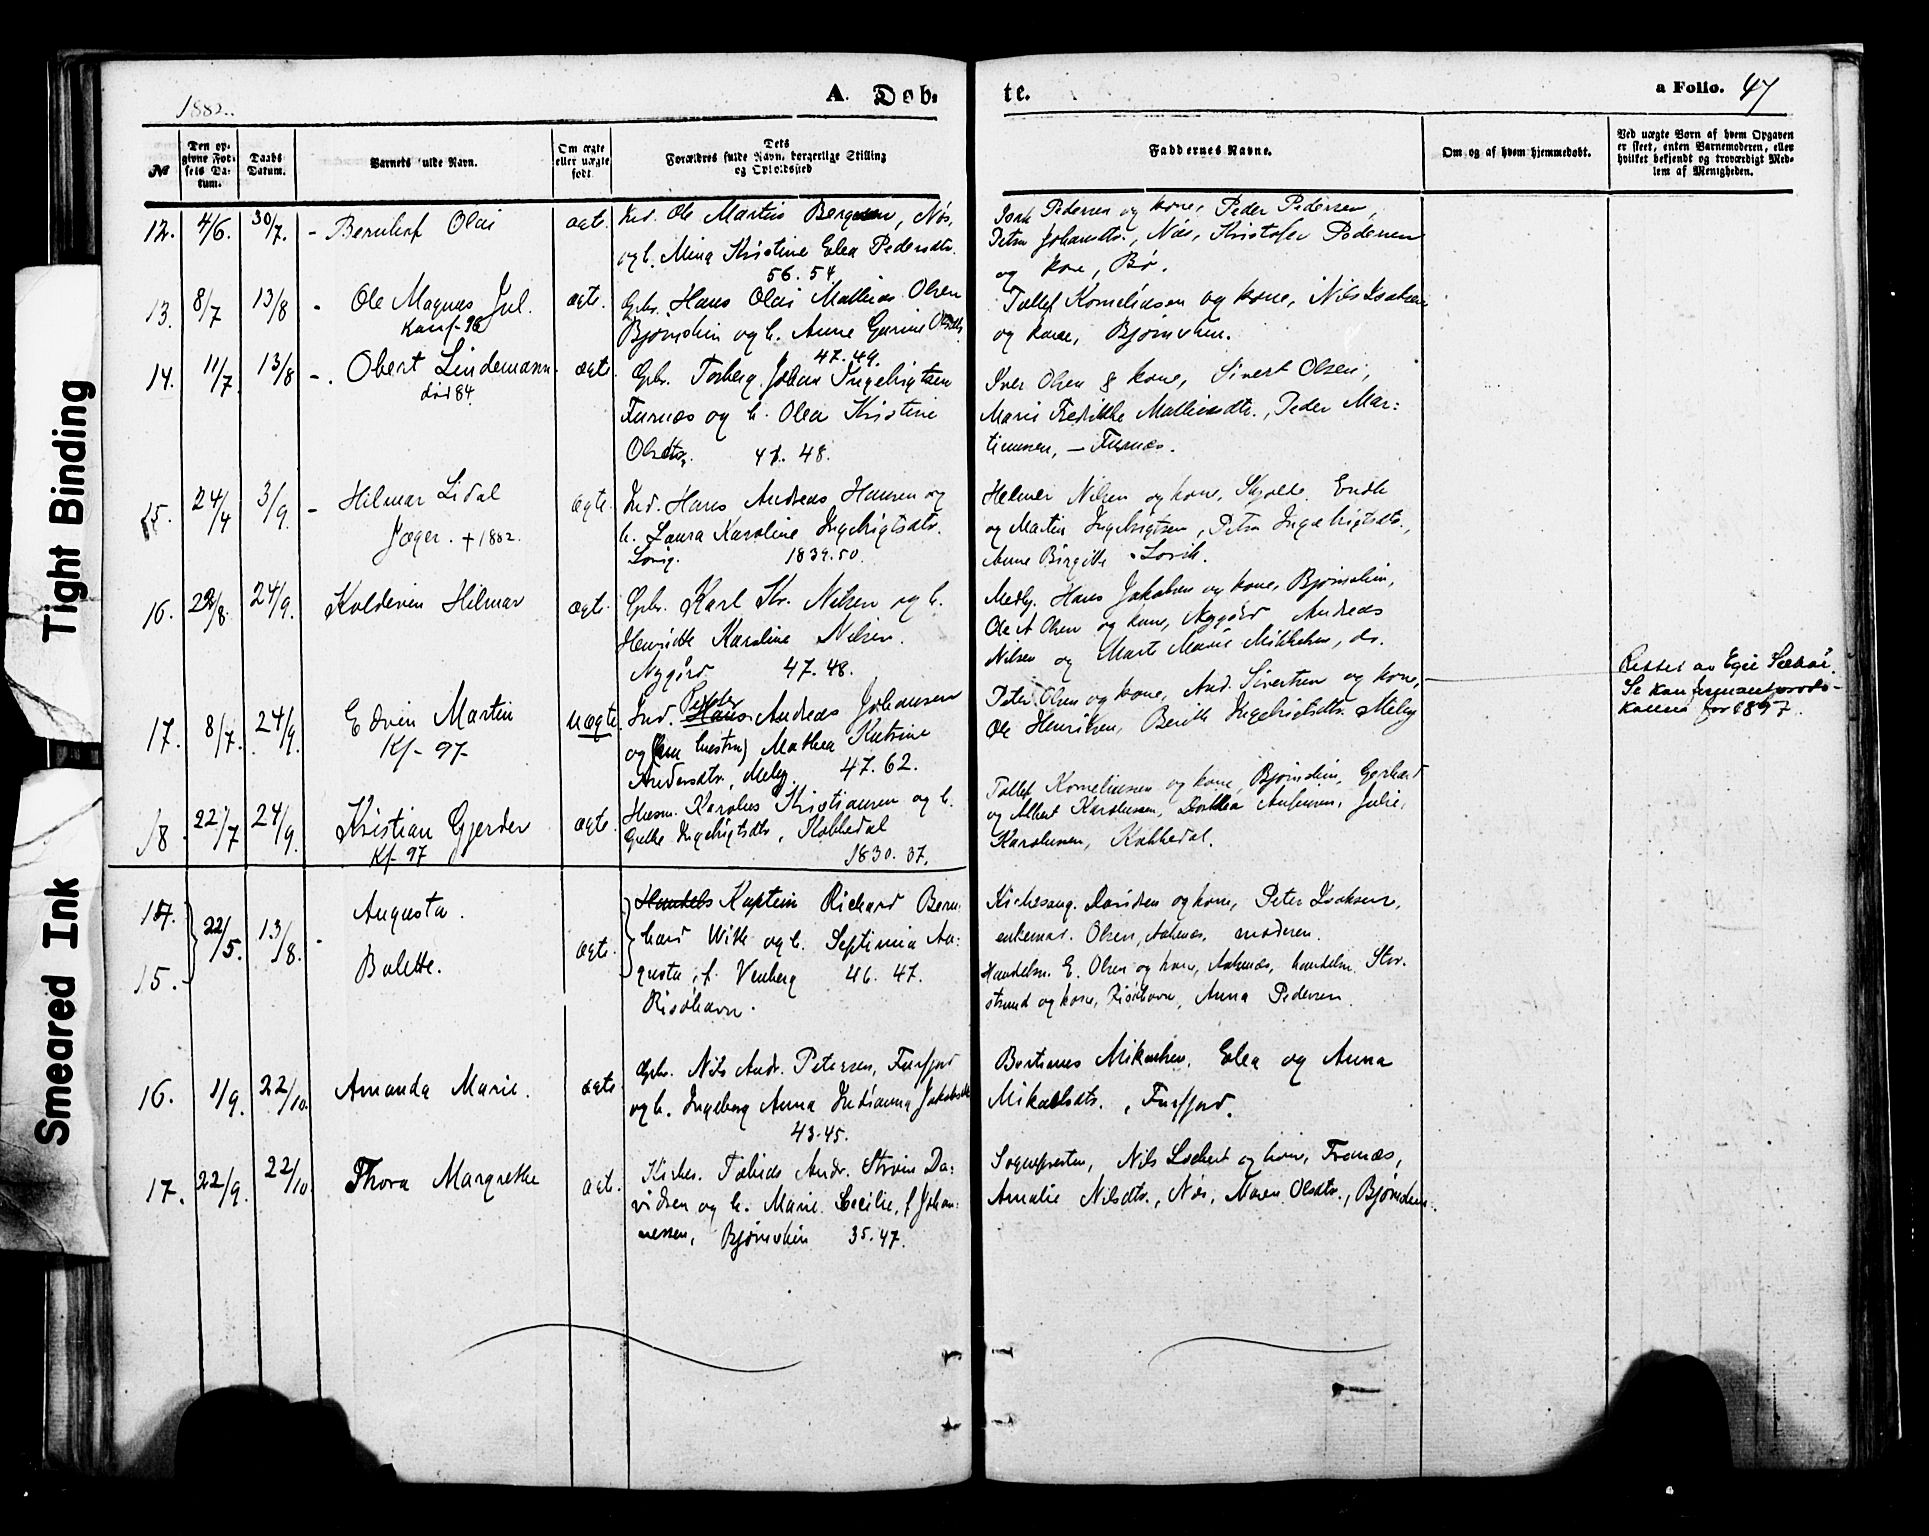 1882.
A. Døb-
te.
a Folio. 47
No
Den opgivne Fødsels Datum.
Daabs Datum.
Barnets fulde Navn.
Om ægte eller uægte født
Dets Forældres fulde Navn, borgerlige Stilling og Opholdssted
Faddernes Navne.
Om og af hvem hjemmedøbt.
Ved uægte Børn af hvem Opgaven er skeet, enten Barnemoderen, eller hvilket bekjendt og troværdigt Medlem af Menigheden.
12. 4/6. 30/7. - Bernhof Olai ægte. Ind. Ole Martin Bergersen, Nøs,
og h. Mina Kristine Elea Pedersdtr.
56. 54
Isak Pedersen og kone, Peder Pedersen,
Petra Johansdtr., Nøs, Kristofer Pedersen
og kone, Bø.
13. 8/7 13/8 - Ole Magnus Jul. ægte. Gbr. Hans Olai Mathias Olsen
Konf-96
Bjørnskin og h. Anne Gurine Olsdtr.
47. 49.
Tollef Korneliussen og kone, Nils Isaksen
og kone, Bjørnskin.
14. 11/7 13/8 - Obert Lindemann ægte. Gbr. Torberg Johan Ingebrigtsen
død 84.
Furnæs og h. Olea Kristine
Olsdtr. 47. 48.
Iver Olsen & kone, Sivert Olsen,
Marie Fredrikke Mathisdtr., Peder Mar-
tinussen, - Furnæs.
15. 24/4 3/9. - Hilmar Lidal ægte. Ind. Hans Andreas Hansen og
Jæger. + 1882.
h. Laura Karoline Ingebrigtsdtr.
1839. 50.
Helmer Nilsen og kone,
og Martin Ingebrigtsen, Petra Ingebrigtsdtr.,
Anne Birgitte
16. 22/8. 24/9. Koldevin Hilmar ægte. Gbr. Karl Kr. Nilsen og h.
Henriette Karoline Nilsen.
Nygård 47. 48.
Medhj. Hans Jakobsen og kone, Bjørnskin,
Ole A Olsen og kone, Nygård Andreas
Nilsen og Marte Marie Mikkelsen, ds.
17. 8/7. 24/9. Edvin Martin uægte Ind. Hans Peder Andreas Johansen
Kf- 97-
og Mathea Katrine
Andersdtr., Meløy. 47. 62.
Peter Olsen og kone, And. Sivertsen og kone,
Ole Henriksen, Berith Ingebrigtsdtr. Meløy
Rettet av
Se konfirmantproto-
kollen for 1897.
18. 22/7 24/9. Kristian Gjerder ægte. Husm. Karolus Kristiansen og h.
Kf- 97
Ingebrigtsdtr, Kobbedal
1830. 37.
Tollef Korneliussen og kone, Bjørnskin, Gerhard
og Albert Karolussen, Dorthea Antonsen, Julie
Karolussen, Kobbedal.
14. 22/5. 13/8. - Augusta. ægte. Handels Kaptein Richard Bern-
15. Bolette.
hard With og h. Septimia Au-
gusta, f. Venberg 46. 47.
Risøhavn.
Kirkesang. Davidsen og kone, Peter Isaksen,
enkemad. Olsen, moderen.
Handelsm. E. Olsen og kone, handelsm. Stor-
strand og kone, Risøhavn, Anna Pedersen.
16. 1/9. 22/10. Amanda Marie. ægte Gbr. Nils Andr. Petersen, Furfjord
og h. Ingeborg Anna Indianna Jakobsdtr
43-45.
Bertheus Mikalsen, Elea og Anna
Mikalsdtr., Furfjord.
17. 22/9. 22/10. Thora Margrethe ægte. Kirkes. Tobias Andr. Strøm Da-
vidsen og h. Marie Cecilie, f Johan-
nessen, Bjørnskin 35. 47.
Sognepresten, Nils Lockert og kone,
Amalie Nilsdtr., Nøs, Maren Olsdtr., Bjørnskin.
Tight Binding
Smeared Ink